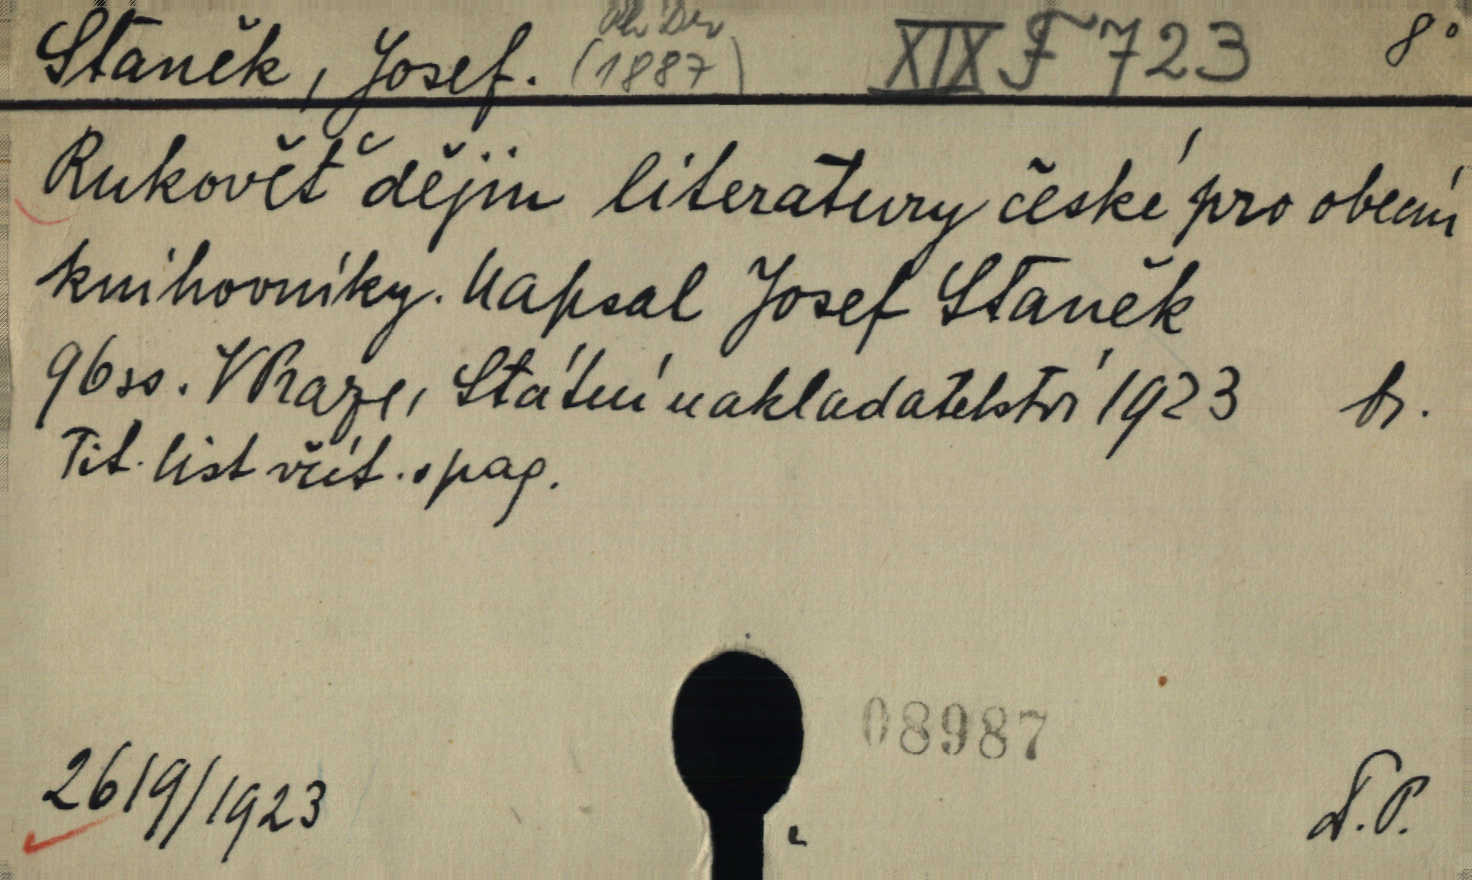 Staněk, Josef. (1887) XIX F 723 8°
Rukověť dějin literatury české pro obecní
knihovníky. Napsal Josef Staněk
96 ss. V Praze, Státní nakladatelství 1923 br.
Tit. list včít. v pag.
08987
2619/1923